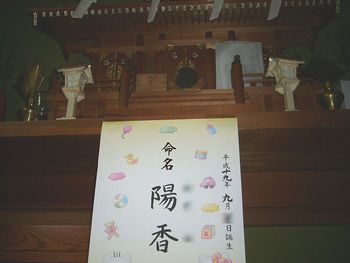 命名
陽香
平成十九年
九月
日誕生